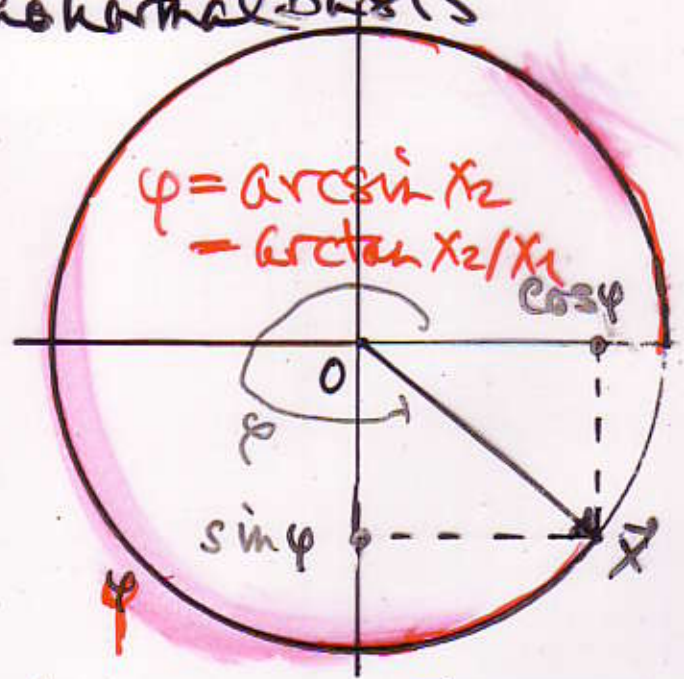 φ = arcsin x₂
= arctan x₂/x₁
cosφ
0
φ
sinφ
x⃗
φ